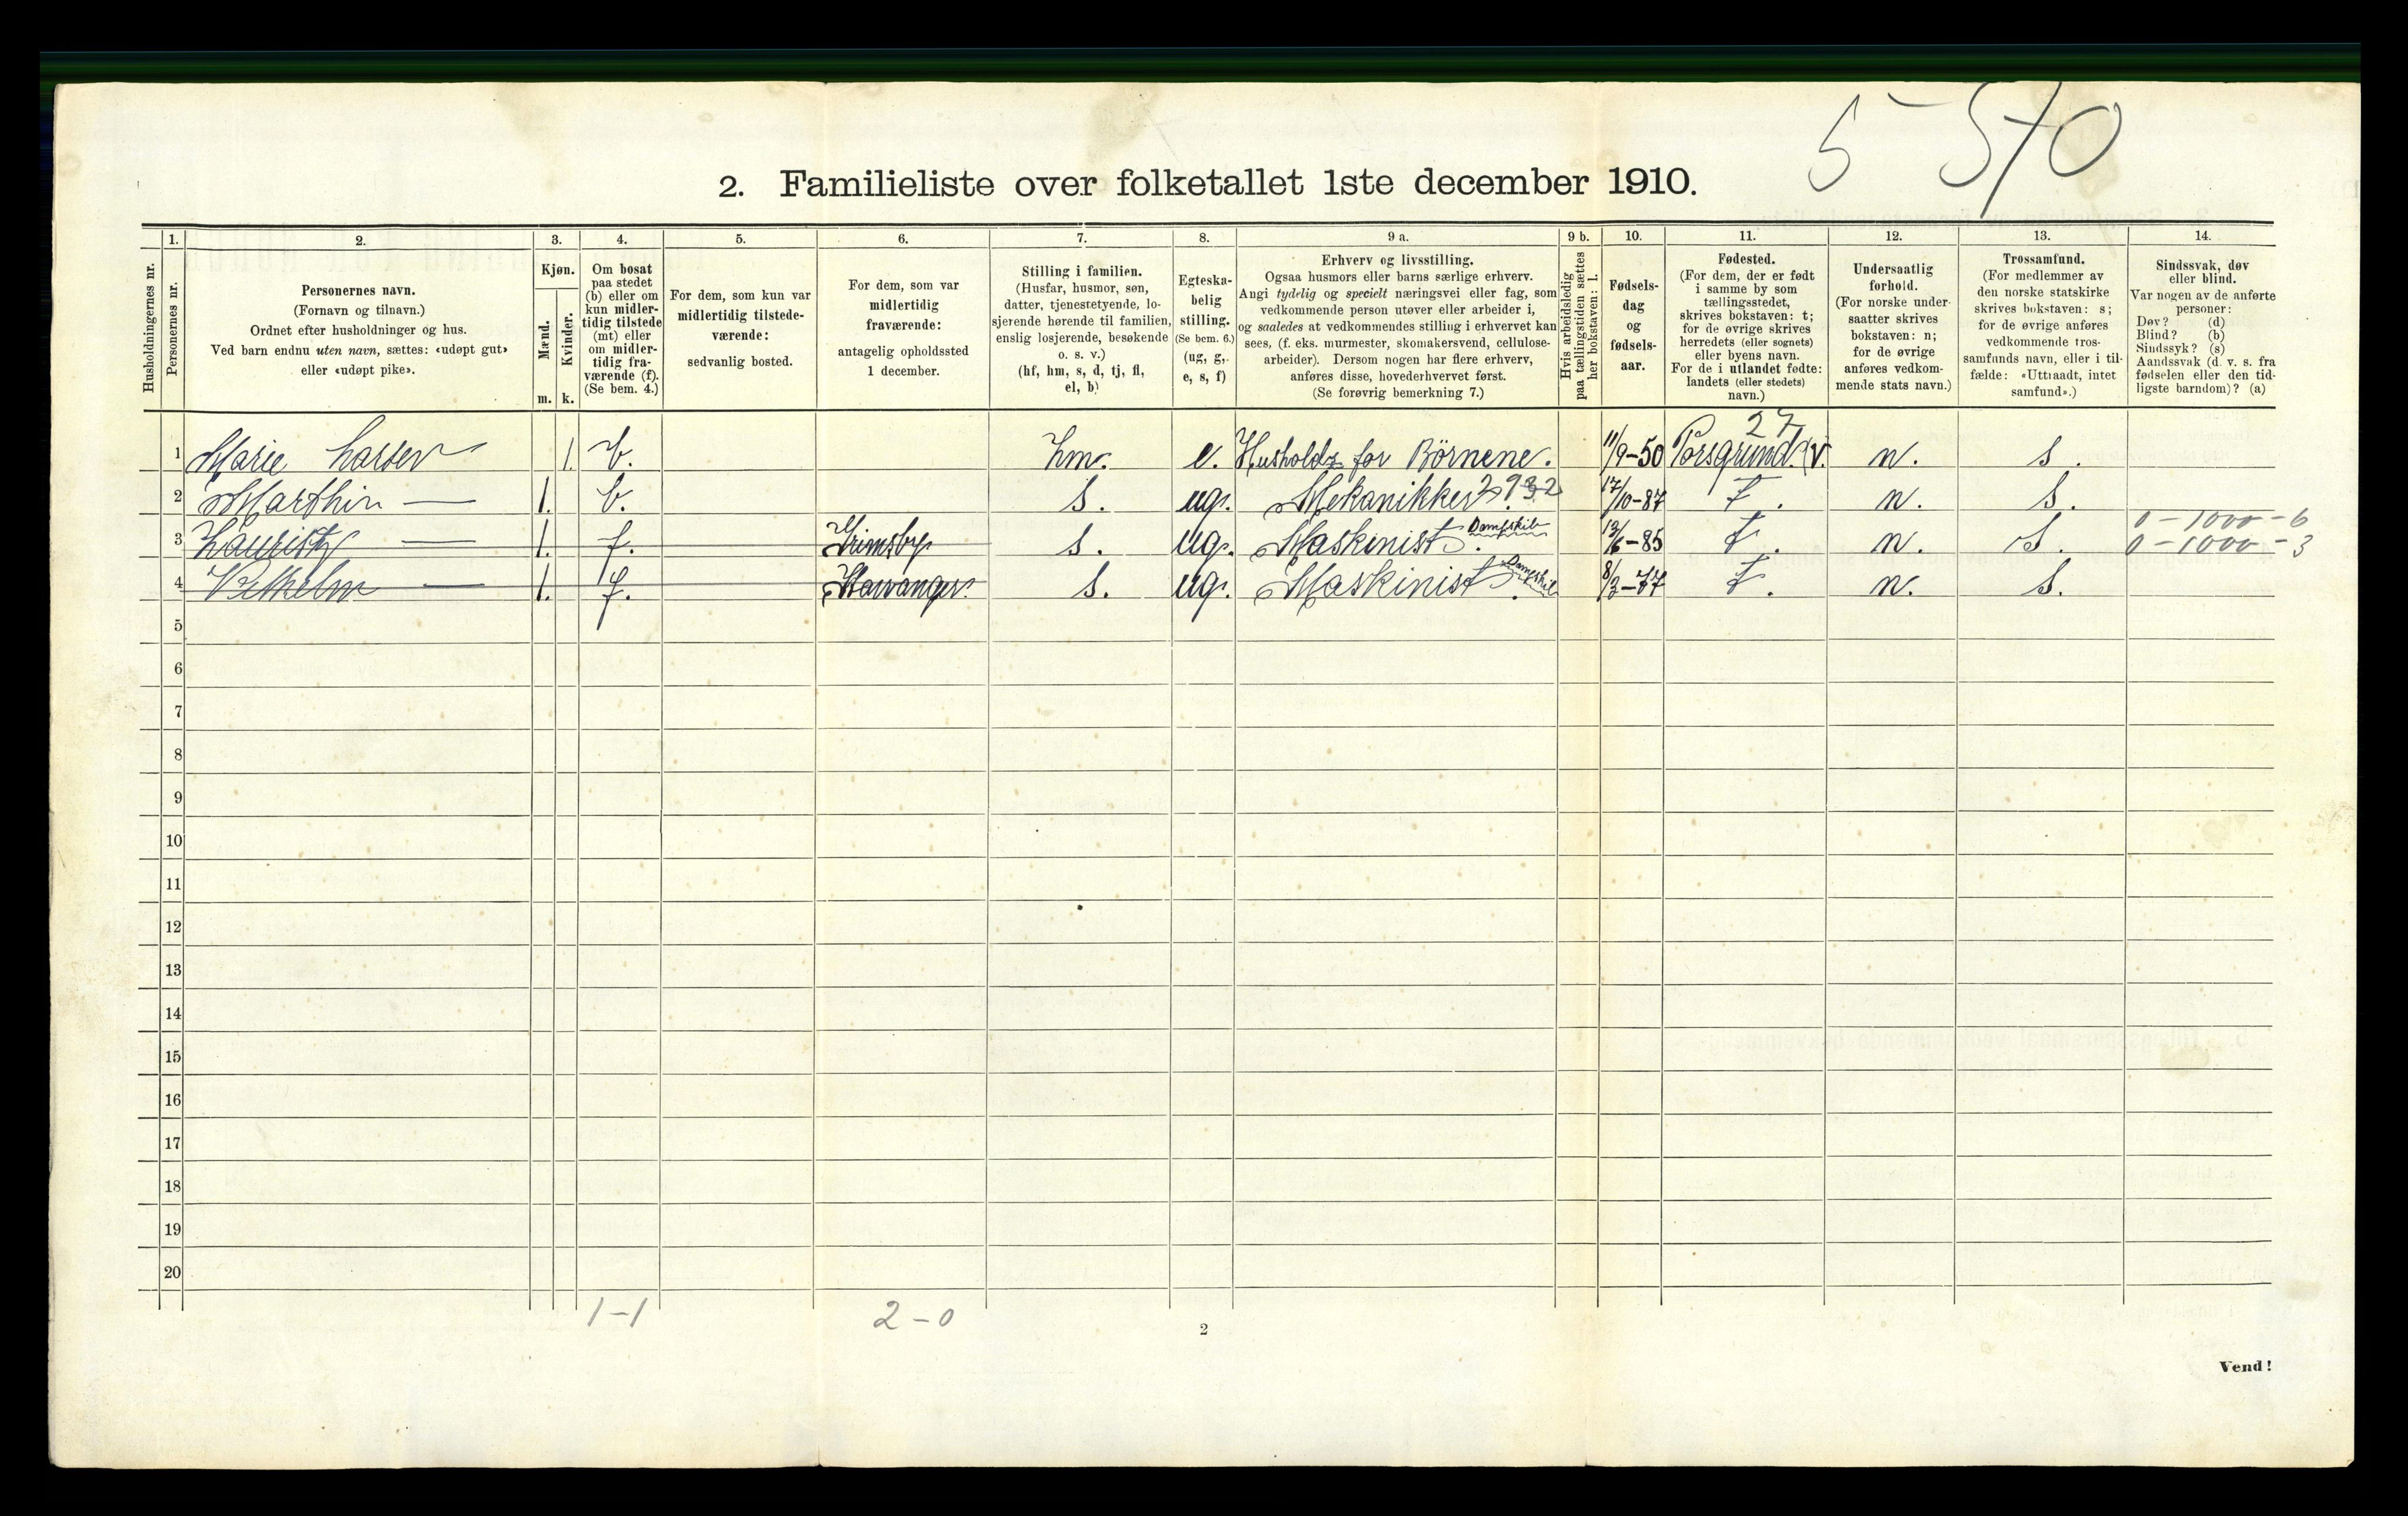 5 - 570
2. Familieliste over folketallet 1ste december 1910.
1. 2. 3. 4. 5. 6. 7. 8. 9 a. 9 b. 10. 11. 12. 13. 14.
Husholdningernes nr.
Personernes nr.
Personernes navn.
(Fornavn og tilnavn.)
Ordnet efter husholdninger og hus.
Ved barn endnu uten navn, sættes: «udøpt gut»
eller «udøpt pike».
Kjøn.
Mænd.
Kvinder.
m. k.
Om bosat
paa stedet
(b) eller om
kun midler-
tidig tilstede
(mt) eller
om midler-
tidig fra-
værende (f).
(Se bem. 4.)
For dem, som kun var
midlertidig tilstede-
værende:
sedvanlig bosted.
For dem, som var
midlertidig
fraværende:
antagelig opholdssted
1 december.
Stilling i familien.
(Husfar, husmor, søn,
datter, tjenestetyende, lo-
sjerende hørende til familien,
enslig losjerende, besøkende
o. s. v.)
(hf, hm, s, d, tj, fl,
el, b)
Egteska-
belig
stilling.
(Se bem. 6.)
(ug, g,
e, s, f)
Erhverv og livsstilling.
Ogsaa husmors eller barns særlige erhverv.
Angi tydelig og specielt næringsvei eller fag, som
vedkommende person utøver eller arbeider i,
og saaledes at vedkommendes stilling i erhvervet kan
sees, (f. eks. murmester, skomakersvend, cellulose-
arbeider). Dersom nogen har flere erhverv,
anføres disse, hovederhvervet først.
(Se forøvrig bemerkning 7.)
Hvis arbeidsledig
paa tællingstiden sættes
her bokstaven: l.
Fødsels-
dag
og
fødsels-
aar.
Fødested.
(For dem, der er født
i samme by som
tællingsstedet,
skrives bokstaven: t;
for de øvrige skrives
herredets (eller sognets)
eller byens navn.
For de i utlandet fødte:
landets (eller stedets)
navn.)
Undersaatlig
forhold.
(For norske under-
saatter skrives
bokstaven: n;
for de øvrige
anføres vedkom-
mende stats navn.)
Trossamfund.
(For medlemmer av
den norske statskirke
skrives bokstaven: s;
for de øvrige anføres
vedkommende tros-
samfunds navn, eller i til-
fælde: «Uttraadt, intet
samfund».)
Sindssvak, døv
eller blind.
Var nogen av de anførte
personer:
Døv? (d)
Blind? (b)
Sindssyk? (s)
Aandssvak (d. v. s. fra
fødselen eller den tid-
ligste barndom)? (a)
27
1 Marie Larsen 1. b. hm. e. Husholdg for Börnene. 11/9-50 Porsgrund. (v. n. s.
2 Marthin — 1. b. s. ug. Mekanikker 2932 17/10-87 t. n. s.
Dampskib 0 - 1000 - 6
3 Lauritz — 1. f. Grimsby s. ug. Maskinist. 13/6-85 t. n. s. 0 - 1000 - 3
Dampskib
4 Vilhelm — 1. f. Stavanger s. ug. Maskinist. 8/3-77 t. n. s.
5
6
7
8
9
10
11
12
13
14
15
16
17
18
19
20
1 - 1 2 - 0
2
Vend!